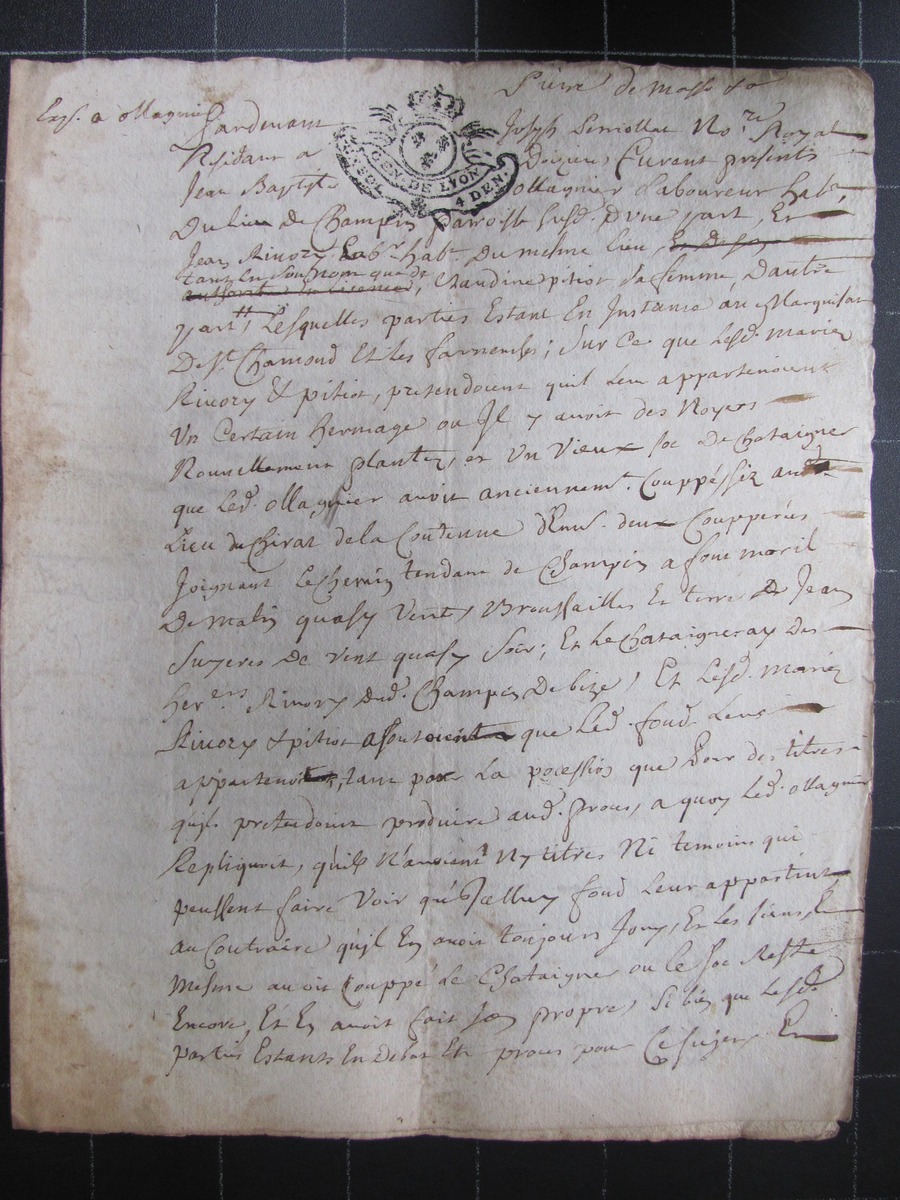 Exp. a ollagnier
Pardevant Joseph No.re Royal
Residant a furent presents
GEN. DE LYON
4 DEN.
Jean Baptiste ollagnier Laboureur hab.
Du lieu de Champin parroisse D'une part, Et
Jean Rivory Lab.r hab. Du mesme lieu
tant En son nom que de
Claudine pitiot sa femme, D'autre
part, Lesquelles parties Estant En Instance au Marquisat
De St. Chamond Et les farnenches; Sur Ce que Lesd. mariez
Rivory & pitiot, pretendoient quil Leur appartenoient
Un Certain hermage ou Il y avoit des Noyers
Nouvellement plantez, et Un Vieux soc De Chataigner
que Led. ollagnier avoit anciennemt. Couppé
Lieu du Chirat de la Coudenne deux Coupperées
Joignant Le Chemin tendant de Champin a
De matin quasy Vent, Broussailles Et terre De Jean
De Vent quasy Soir; Et Le Chataigneray Des
her.ers Rivory Dud. Champin De bize, Et Lesd. mariez
Rivory & pitiot que Led. fond Leur
appartenoit, tant par La pocession que par des titres
quils pretendoient produire aud. proces, a quoy Led. ollagnier
Repliquoit, quils N'avoient Ny titres Ni temoins qui
peussent faire Voir qu'Icelluy fond Leur appartint
au Contraire qu'il En avoit toujours Jouy, Et les siens, Et
Mesme avoit Couppé Le Chataigner ou Le soc Reste
Encore, Et En avoit fait son propre, Si bien que Lesd.
parties Estants En Debat Et proces pour Ce sujet Et